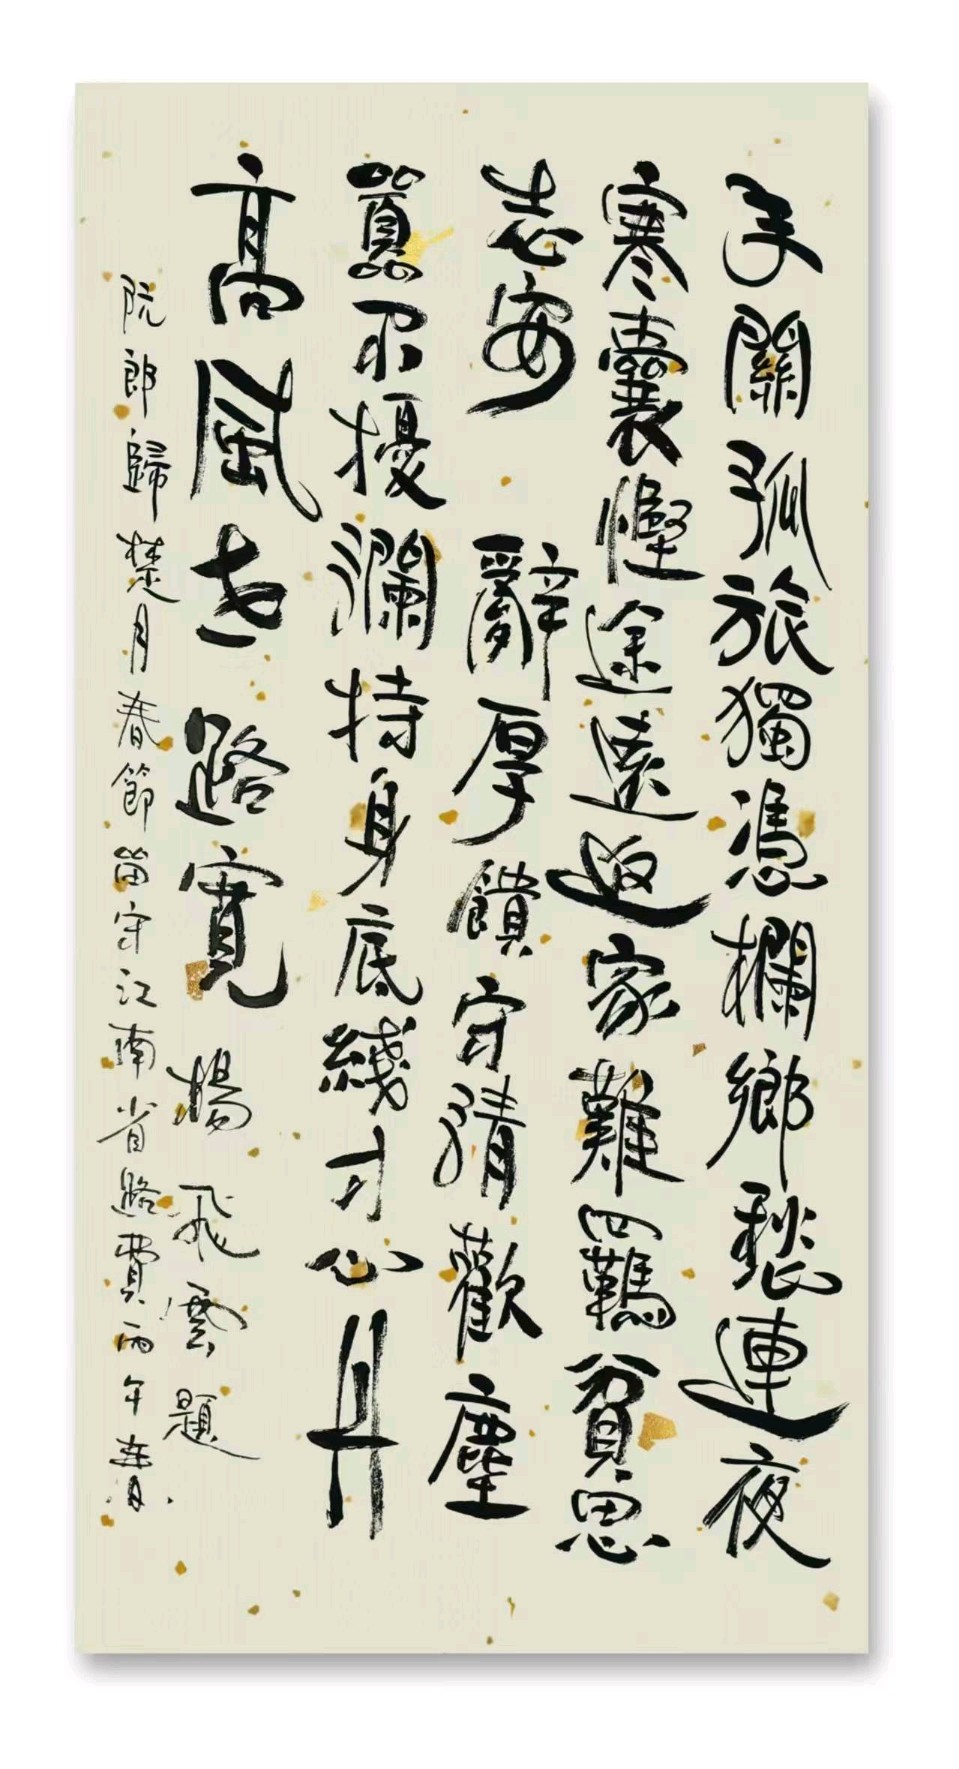 年關孤旅獨憑欄鄉愁連夜
寒囊慳途遠返家難羈貧思
志安　辭厚饋守清歡塵
囂不擾瀾持身底綫寸心丹
高風世路寬　楊飛雲題
阮郎歸楚月春節留守江南省路費丙午春